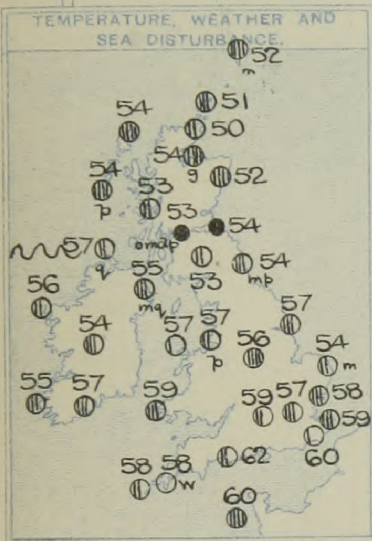 TEMPERATURE, WEATHER AND
SEA DISTURBANCE.
52
m
51
54
50
54
g
54
p
53
52
53
54
omdp
57
q
55
mq
53
54
mp
56
54
57
57
p
57
56
54
m
55
57
59
59
57
58
59
60
62
58
58
w
60